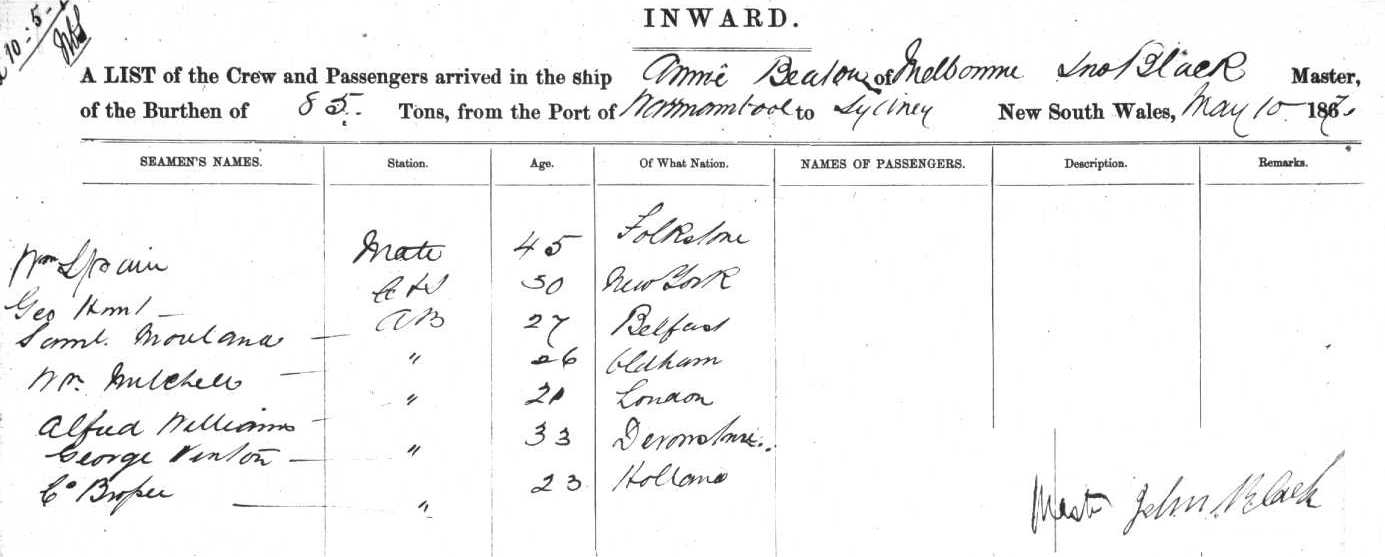 10-5-
INWARD.
A LIST of the Crew and Passengers arrived in the ship Annie Beaton of Melbourne Jno Black Master,
of the Burthen of 85 Tons, from the Port of Warrnambool to Sydney New South Wales, May 10 187
SEAMEN'S NAMES. Station. Age. Of What Nation. NAMES OF PASSENGERS. Description. Remarks.
Wm Spain Mate 45 Folkstone
Geo 30 New York
Saml. Mouland AB 27 Belfast
Wm. Mitchell " 26 Oldham
Alfred Williams " 21 London
George Venton " 33 Devonshire.
Co " 23 Holland
Mast John Black